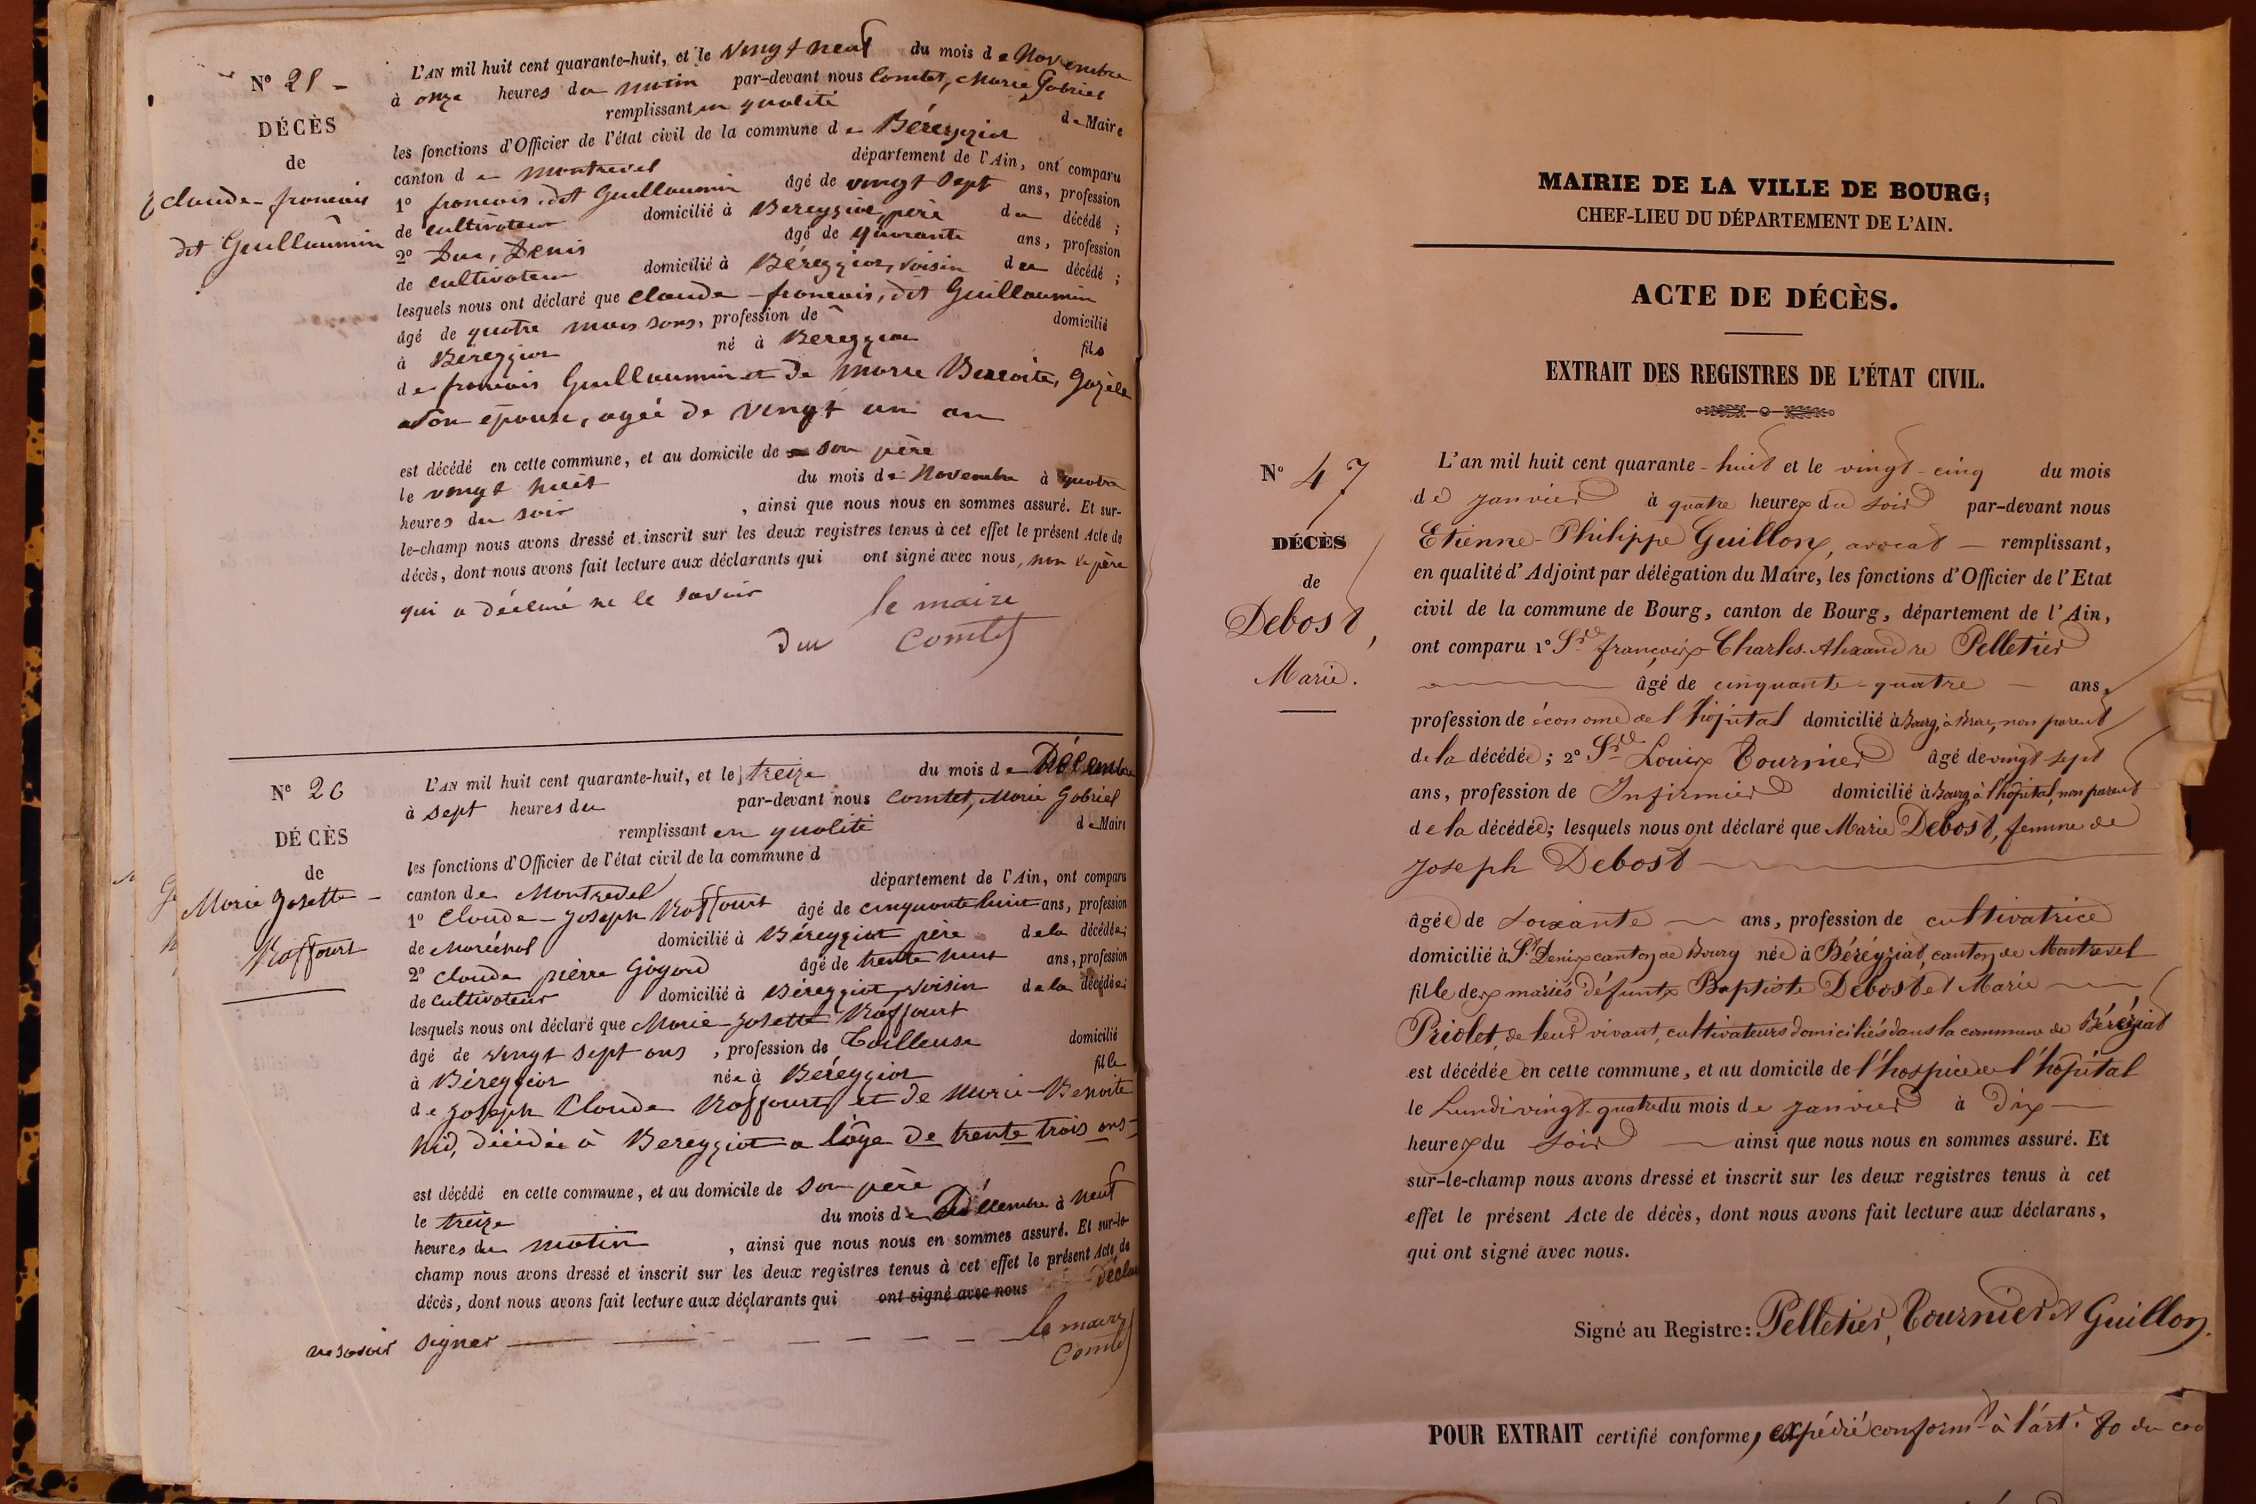 N° 28 -
DÉCÈS
de
claude-francois
dit Guillaumin
L'AN mil huit cent quarante-huit, et le vingt neuf du mois de Novembre
à onze heures du matin par-devant nous Comtet, Marie Gabriel
remplissant en qualité de Maire
les fonctions d'Officier de l'état civil de la commune de Béreyziat
canton de montrevel département de l'Ain, ont comparu
1° francois, dit Guillaumin âgé de vingt sept ans, profession
de cultivateur domicilié à Bereyziat, père du décédé ;
2° Duc, Denis âgé de quarante ans, profession
de cultivateur domicilié à Béreyziat, voisin du décédé ;
lesquels nous ont déclaré que claude-francois, dit Guillaumin
âgé de quatre mois sans, profession de domicilié
à Béreyziat né à Bereyziat fils
de francois Guillaumin et de Marie Benoite, Gozèle
son épouse, agée de vingt un an
est décédé en cette commune, et au domicile de son père
le vingt huit du mois de Novembre à quatre
heures du soir , ainsi que nous nous en sommes assuré. Et sur-
le-champ nous avons dressé et inscrit sur les deux registres tenus à cet effet le présent Acte de
décès, dont nous avons fait lecture aux déclarants qui ont signé avec nous, non le père
qui a déclaré ne le savoir
le maire
Duc Comtet
N° 29
DÉCÈS
de
Marie Josette -
Roffourt
L'AN mil huit cent quarante-huit, et le treize du mois de Décembre
à sept heures du par-devant nous Comtet, Marie Gabriel
remplissant en qualité de Maire
les fonctions d'Officier de l'état civil de la commune d
canton de Montrevel département de l'Ain, ont comparu
1° Claude-Joseph Roffourt âgé de cinquante huit ans, profession
de Maréchal domicilié à Béreyziat père de la décédée;
2° Claude pierre Goyard âgé de trente huit ans, profession
de cultivateur domicilié à Béreyziat, voisin de la décédée;
lesquels nous ont déclaré que Marie-Josette Roffourt
âgé de vingt sept ans , profession de Tailleuse domicilié
à Béreyziat née à Béreyziat fille
de Joseph Claude Roffourt et de Marie-Benoite
Nid, décédée à Bereyziat a l'âge de trente trois ans-
est décédé en cette commune, et au domicile de son père
le treize du mois de Décembre à neuf
heures du matin , ainsi que nous nous en sommes assuré. Et sur-le-
champ nous avons dressé et inscrit sur les deux registres tenus à cet effet le présent Acte de
décès, dont nous avons fait lecture aux déclarants qui ont signé avec nous
ne savoir signer
le maire
Comtet
MAIRIE DE LA VILLE DE BOURG;
CHEF-LIEU DU DÉPARTEMENT DE L'AIN.
ACTE DE DÉCÈS.
EXTRAIT DES REGISTRES DE L'ÉTAT CIVIL.
N° 47
DÉCÈS
de
Debost,
Marie.
L'an mil huit cent quarante-huit et le vingt-cinq du mois
de janvier à quatre heures du soir par-devant nous
Etienne-Philippe Guillon, avocat — remplissant,
en qualité d'Adjoint par délégation du Maire, les fonctions d'Officier de l'Etat
civil de la commune de Bourg, canton de Bourg, département de l'Ain,
ont comparu 1° Sr. françois-Charles-Alexandre Pelletier
âgé de cinquante-quatre — ans,
profession de économe de l'hôpital domicilié à Bourg, non parent
de la décédée; 2° Sr. Louis Tournier âgé de vingt sept
ans, profession de Infirmier domicilié à Bourg, à l'hôpital, non parent
de la décédée; lesquels nous ont déclaré que Marie Debost, femme de
Joseph Debost
âgée de soixante — ans, profession de cultivatrice
domicilié à St. Denis canton de Bourg née à Béréyziat, canton de Montrevel
fille des mariés défunts Baptiste Debost et Marie
Priolet, de leur vivant, cultivateurs domiciliés dans la commune de Béréziat
est décédée en cette commune, et au domicile de l'hospice de l'hôpital
le Lundi vingt-quatre du mois de janvier à dix —
heures du soir — ainsi que nous nous en sommes assuré. Et
sur-le-champ nous avons dressé et inscrit sur les deux registres tenus à cet
effet le présent Acte de décès, dont nous avons fait lecture aux déclarans,
qui ont signé avec nous.
Signé au Registre: Pelletier, Tournier et Guillon.
POUR EXTRAIT certifié conforme, expédié conformt. à l'art. 80 du